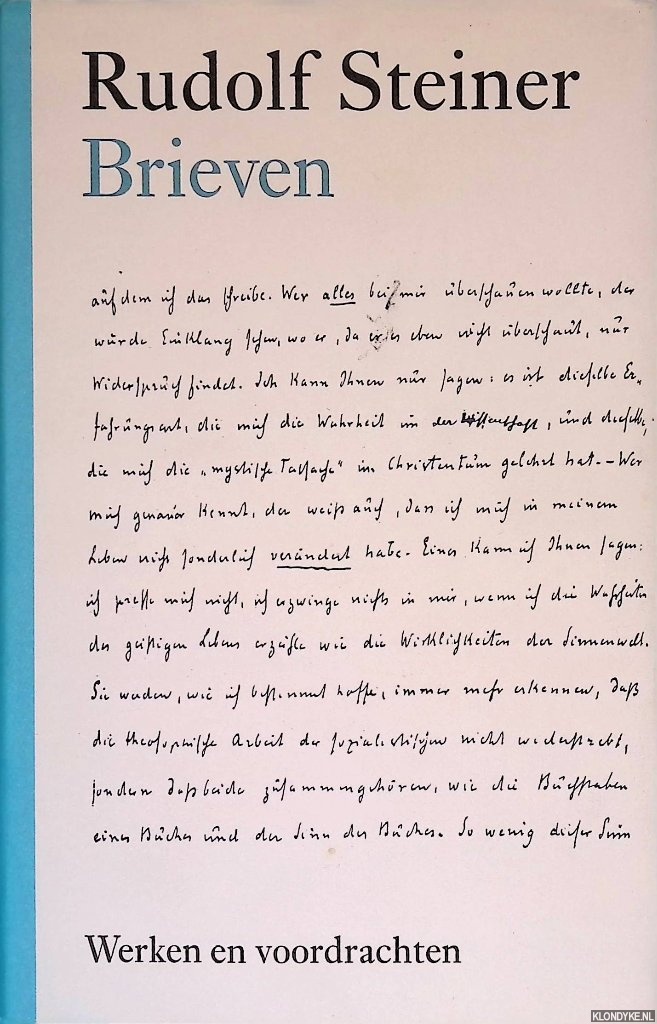 Rudolf Steiner
Brieven
auf dem ich das schreibe. Wer alles bei mir überschauen wollte, der
würde Einklang sehen, wo er, da er es eben nicht überschaut, nur
Widerspruch findet. Ich kann Ihnen nur sagen: es ist dieselbe Er„
fahrungsart, die mich die Wahrheit in der Wissenschaft, und dieselbe,
die mich die „mystische Tatsache“ im Christentum gelehrt hat. – Wer
mich genauer kennt, der weiß auch, dass ich mich in meinem
Leben nicht sonderlich verändert habe. Eines kann ich Ihnen sagen:
ich presse mich nicht, ich erzwinge nichts in mir, wenn ich die Wahrheiten
des geistigen Lebens erzähle wie die Wirklichkeiten der Sinnenwelt.
Sie werden, wie ich bestimmt hoffe, immer mehr erkennen, daß
die theosophische Arbeit der sozialistischen nicht widerstrebt,
sondern daß beide zusammengehören, wie die Buchstaben
eines Buches und der Sinn des Buches. So wenig dieser Sinn
Werken en voordrachten
KLONDYKE.NL